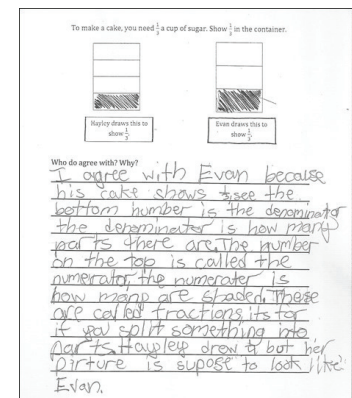 To make a cake, you need 1/3 a cup of sugar. Show 1/3 in the container.
Hayley draws this to
show 1/3.
Evan draws this to
show 1/3.
Who do agree with? Why?
I agree with Evan because
his cake shows 1/3 see the
bottom number is the denominator
the denominator is how many
parts there are. The number
on the top is called the
numerator the numerater is
how many are shaded. These
are called fractions its for
if you split something into
parts. Hayley drew 1/4 but her
pirture is supose to look like
Evan.